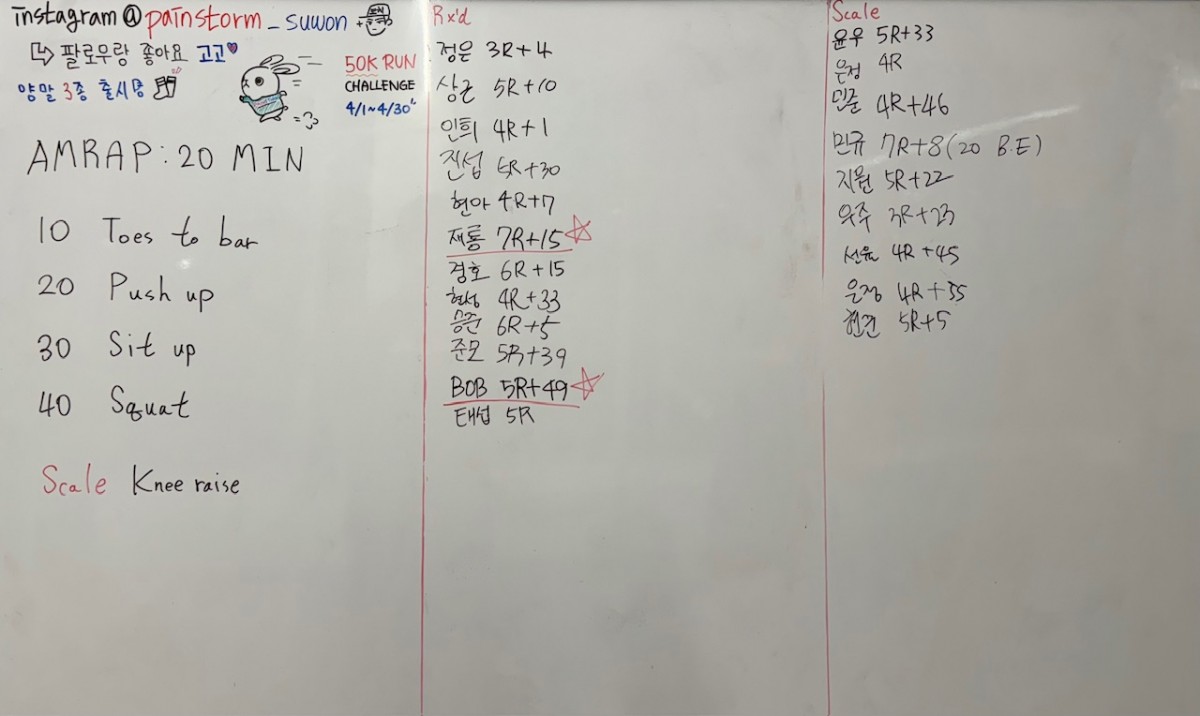 instagram@painstorm_suwon
팔로우랑 좋아요 고고
양말 3종 출시중
50K RUN
CHALLENGE
4/1~4/30
AMRAP: 20 MIN
10 Toes to bar
20 Push up
30 Sit up
40 Squat
Scale Knee raise
Rx'd
정은 3R+4
상근 5R+10
인희 4R+1
진섭 5R+30
현아 4R+7
재룡 7R+15
경호 6R+15
현성 4R+33
승준 6R+5
준모 5R+39
BOB 5R+49
태섭 5R
Scale
윤우 5R+33
은정 4R
민준 4R+46
민규 7R+8(20 B.E)
지원 5R+22
우주 3R+23
선율 4R+45
은정 4R+35
5R+5